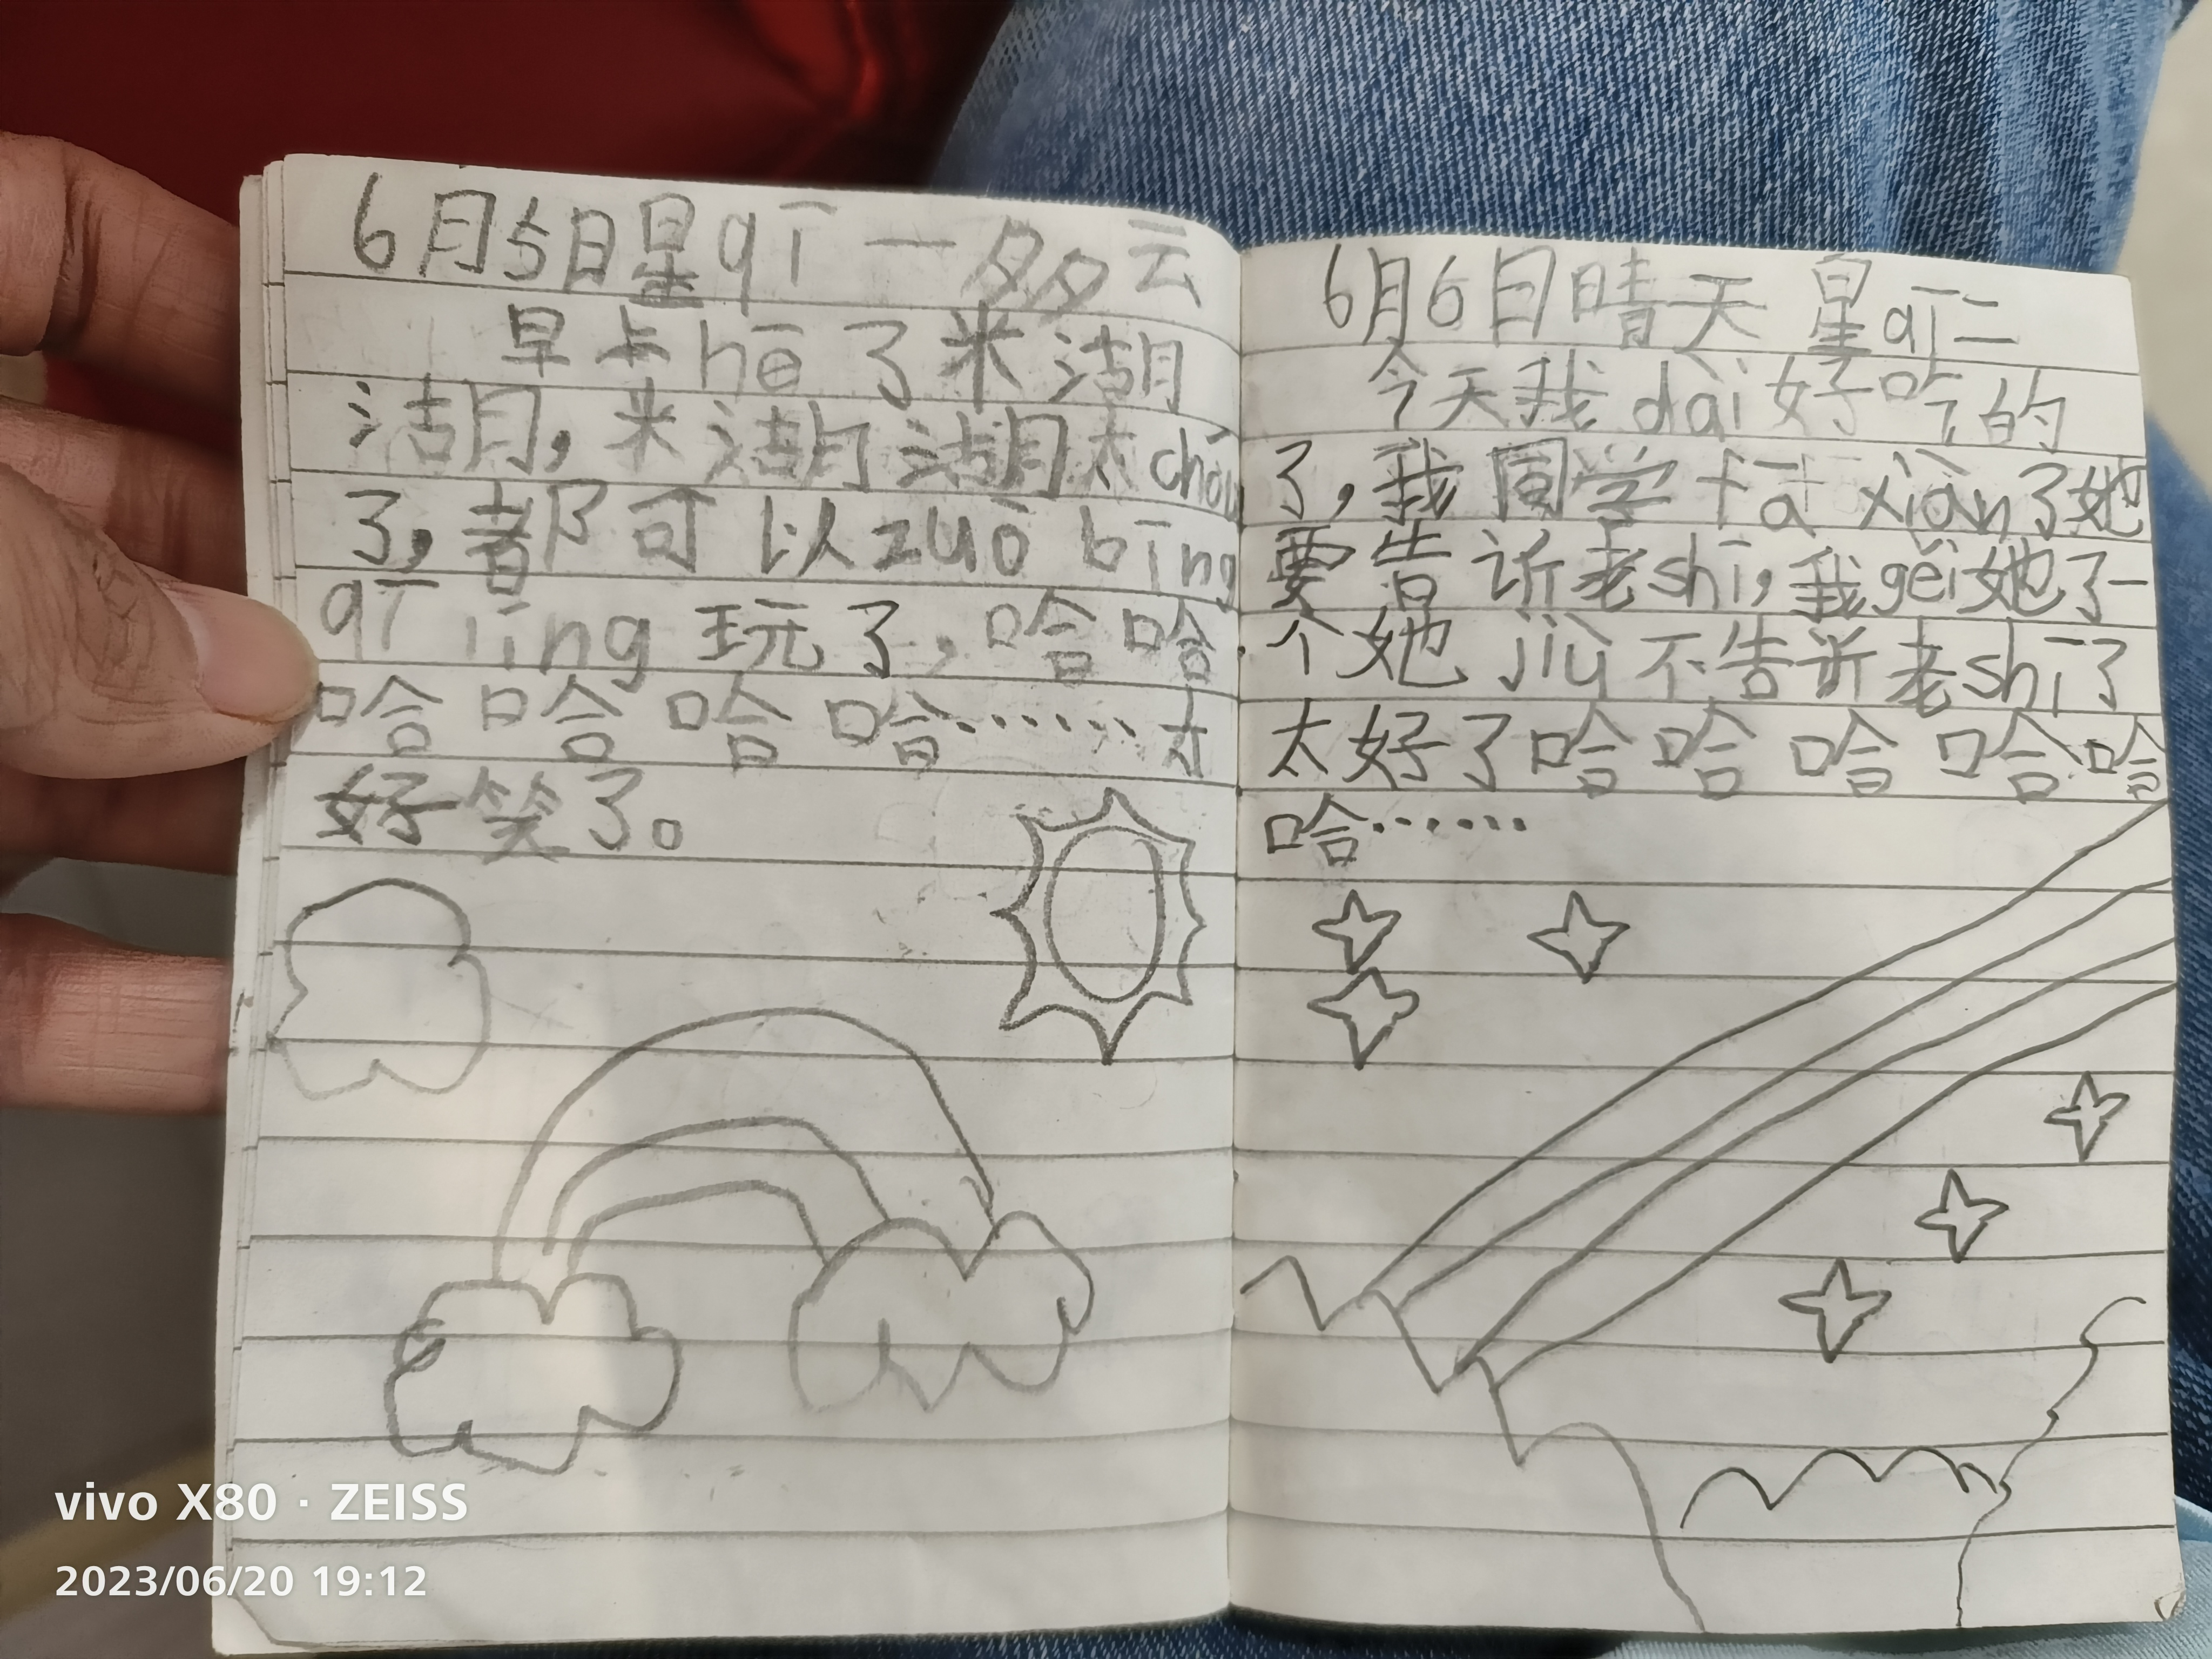 6月5日星qī一多云
早上hē了米湖
湖,米湖湖太chóu
了,都可以zuō bīng
qī līng玩了,哈哈
哈哈哈哈……太
好笑了。
6月6日晴天 星qī二
今天我dài好吃的
了,我同学fā xiàn了她
要告诉老shī,我gěi她了一
个她jiù不告诉老shī了
太好了哈哈哈哈哈
哈……
vivo X80 · ZEISS
2023/06/20 19:12